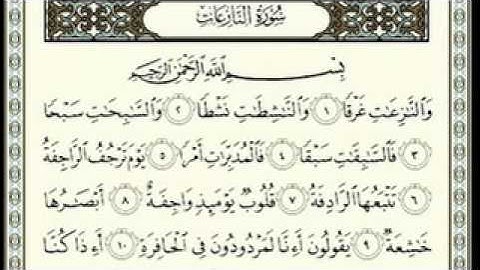 سُورَةُ النَّازِعَاتِ
بِسْمِ اللَّهِ الرَّحْمَٰنِ الرَّحِيمِ
وَالنَّازِعَاتِ غَرْقًا ١ وَالنَّاشِطَاتِ نَشْطًا ٢ وَالسَّابِحَاتِ سَبْحًا
٣ فَالسَّابِقَاتِ سَبْقًا ٤ فَالْمُدَبِّرَاتِ أَمْرًا ٥ يَوْمَ تَرْجُفُ الرَّاجِفَةُ
٦ تَتْبَعُهَا الرَّادِفَةُ ٧ قُلُوبٌ يَوْمَئِذٍ وَاجِفَةٌ ٨ أَبْصَارُهَا
خَاشِعَةٌ ٩ يَقُولُونَ أَءِنَّا لَمَرْدُودُونَ فِي الْحَافِرَةِ ١٠ أَءِذَا كُنَّا